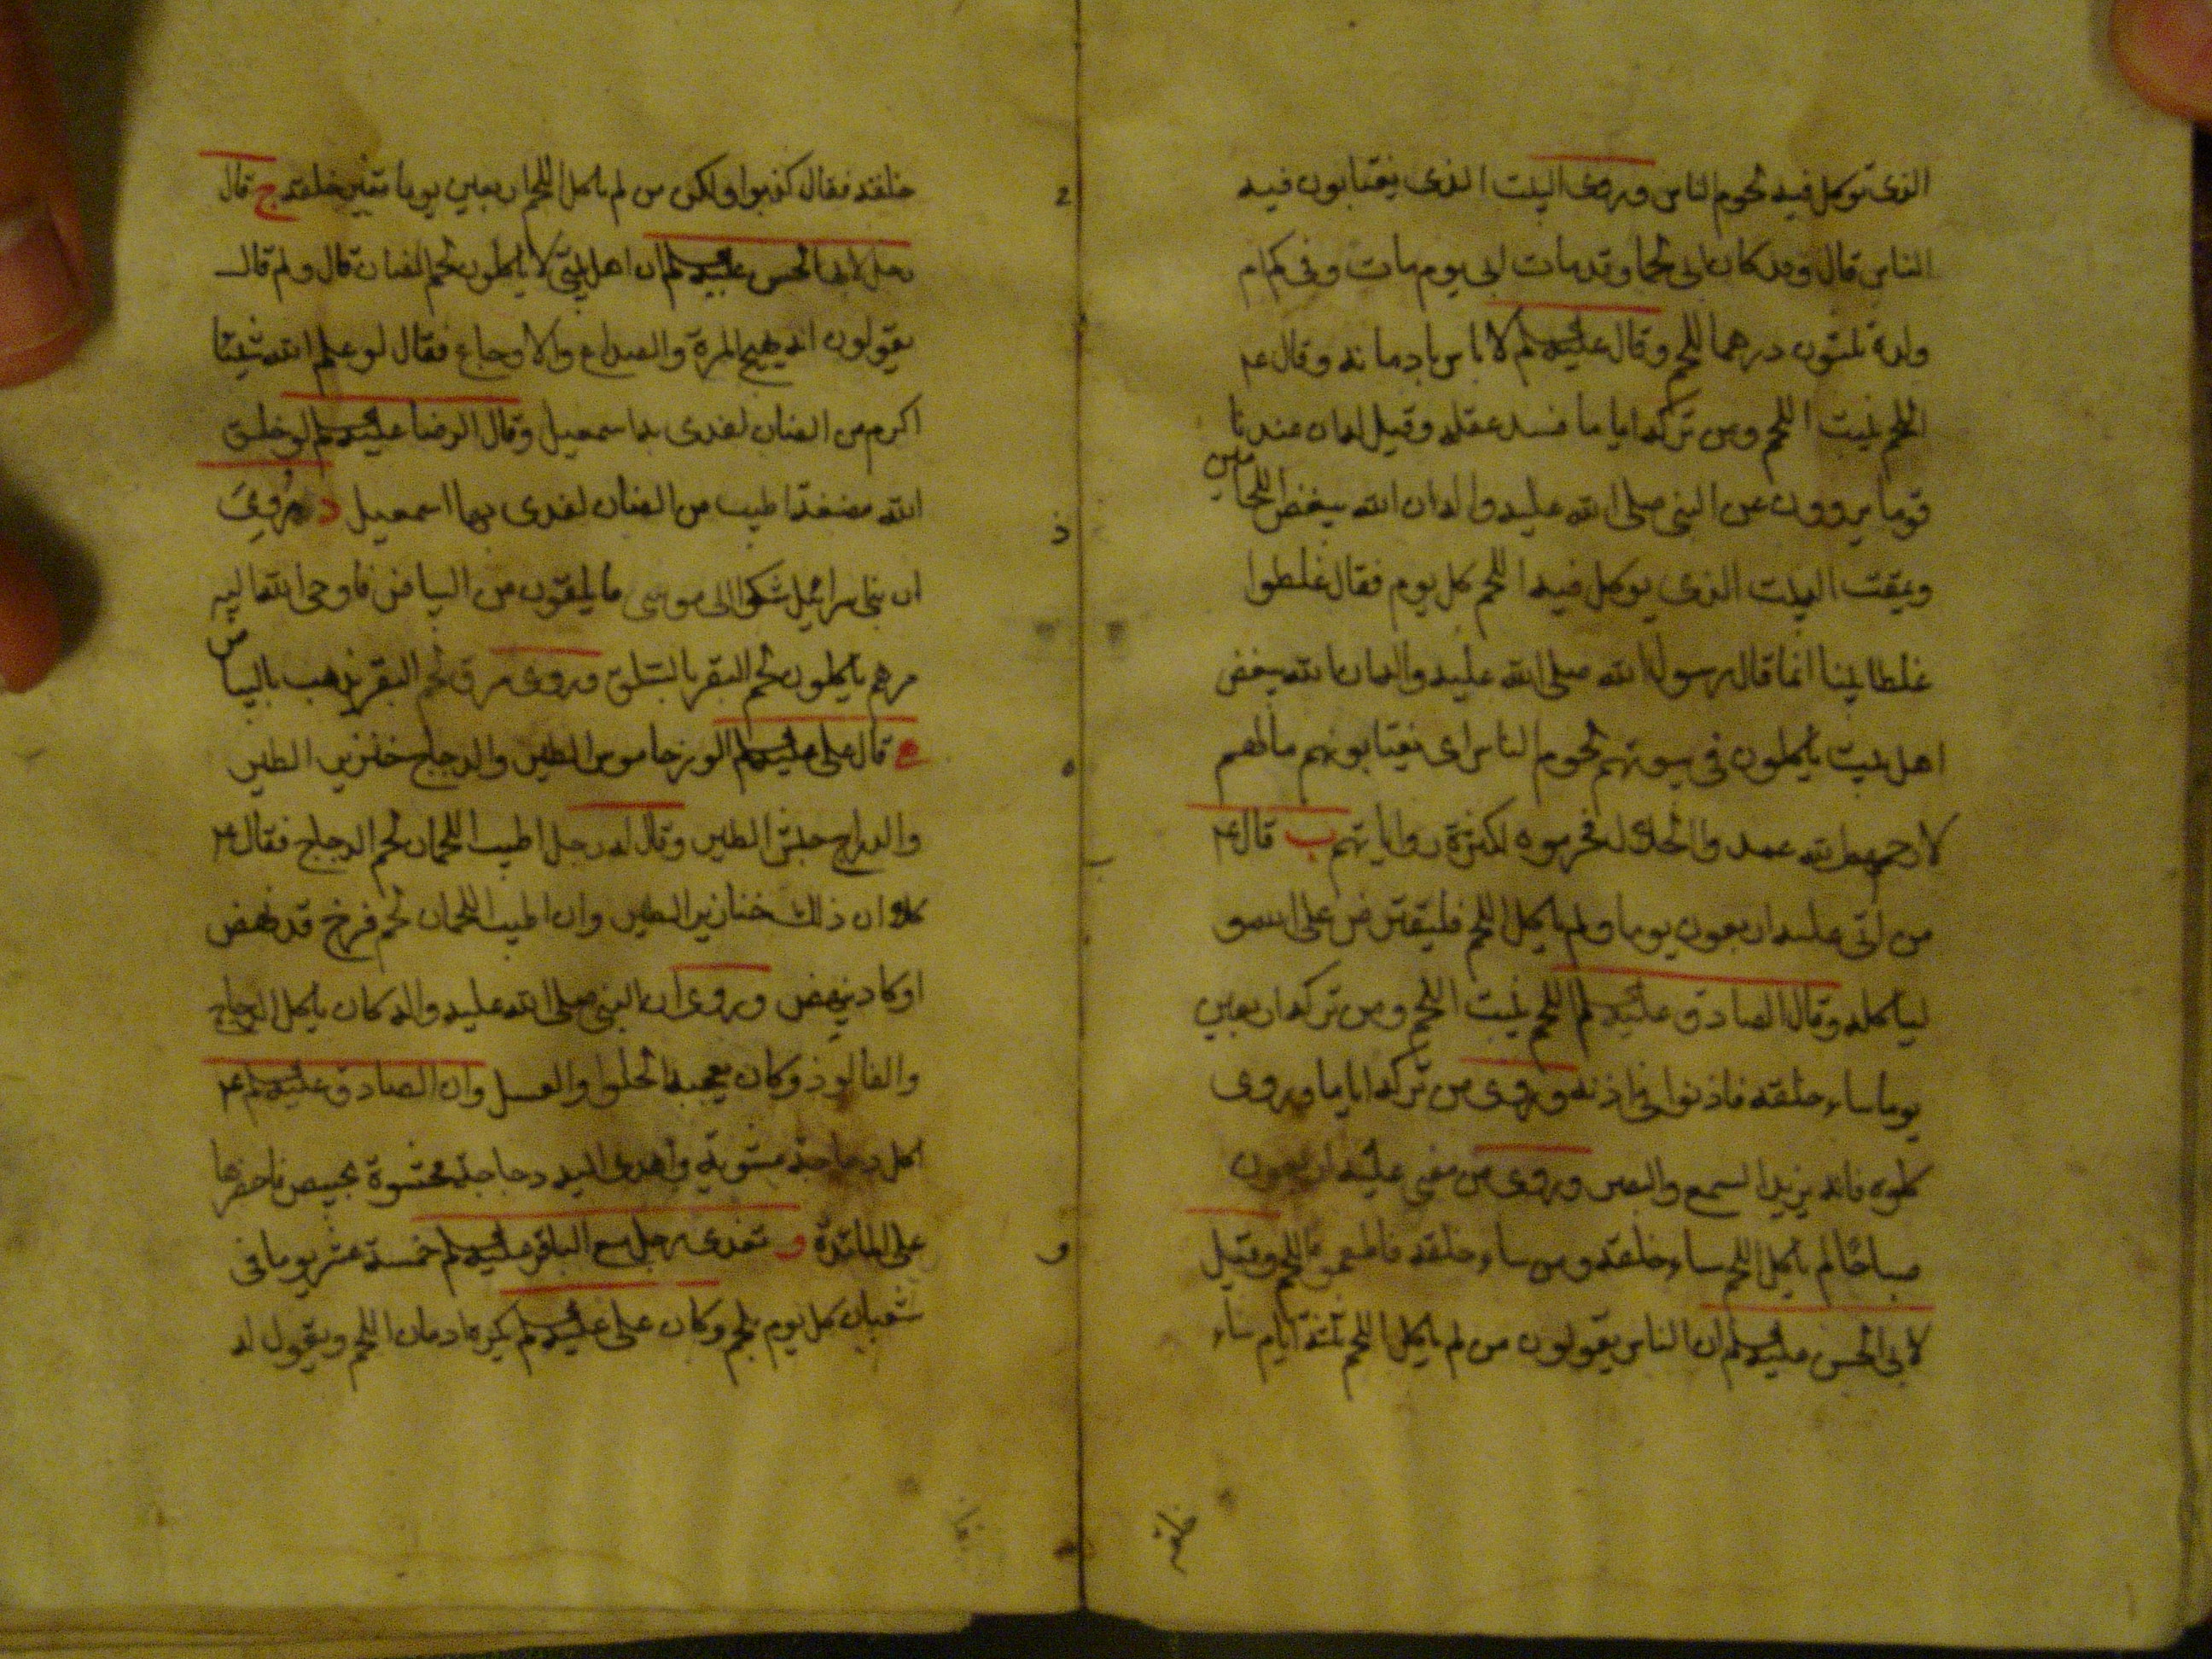 الذى توكل فيه لحوم الناس وروى البيت الذى يغتابون فيه
الناس قال وقد كان ابى لحما وقد مات ابى يوم مات وفى كم ام
ولده ثلثون درهما للحم وقال عليه السلم لا باس بادمانه وقال ع
اللحم ينبت اللحم ومن تركه اياما فسد عقله وقيل له ان عندنا
قوما يروون عن النبى صلى الله عليه واله ان الله يبغض اللحامين
ويمقت البيت الذى يوكل فيه اللحم كل يوم فقال غلطوا
غلطا بينا انما قال رسول الله صلى الله عليه واله ان الله يبغض
اهل بيت ياكلون فى بيوتهم لحوم الناس اى يغتابونهم ما لهم
لا رحمهم الله عمدوا الحلال فحرموه لكثرة رواياتهم ب قال ع
من اتى عليه اربعون يوما ولم ياكل اللحم فليقترض على الله و
لياكله وقال الصادق عليه السلم اللحم ينبت اللحم ومن تركه اربعين
يوما ساء خلقه فاذنوا فى اذنه وروى من تركه اياما وروى
كلوه فانه يزيد السمع والبصر وروى من مضى عليه اربعون
صباحا لم ياكل اللحم ساء خلقه ومن ساء خلقه فاطعموه اللحم وقيل
لابى الحسن عليه السلم ان الناس يقولون من لم ياكل اللحم ثلثة ايام ساء
خلقه فقال كذبوا ولكن من لم ياكل اللحم اربعين يوما تغير خلقه ج قال
رجل لابى الحسن عليه السلم ان اهل بيتى لا ياكلون لحم الضان قال ولم قال
يقولون انه يهيج المرة والصداع والاوجاع فقال لو علم الله شيئا
اكرم من الضان لفدى به اسمعيل وقال الرضا عليه السلم لو خلق
الله مضغة اطيب من الضان لفدى بها اسمعيل د وروى
ان بنى اسرائيل شكوا الى موسى ما يلقون من البياض فاوحى الله اليه
مرهم ياكلون لحم البقر بالسلق وروى مرق لحم البقر يذهب بالبياض
ه قال على عليه السلم الوز جاموس الطير والدجاج خنزير الطير
والدراج حبش الطير وقال له رجل اطيب اللحمان لحم الدجاج فقال ع
كلا ان ذلك خنازير الطير وان اطيب اللحمان لحم فرخ قد نهض
او كاد ينهض وروى ان النبى صلى الله عليه واله كان ياكل الدجاج
والفالوذ وكان يعجبه الحلوا والعسل وان الصادق عليه السلم
اكل دجاجة مشوية واهدى اليه دجاجة محشوة بخبيص فاحضرها
على المائدة و تغدى رجل مع الباقر عليه السلم خمسة عشر يوما فى
شعبان كل يوم بلحم وكان على عليه السلم يكره ادمان اللحم ويقول له